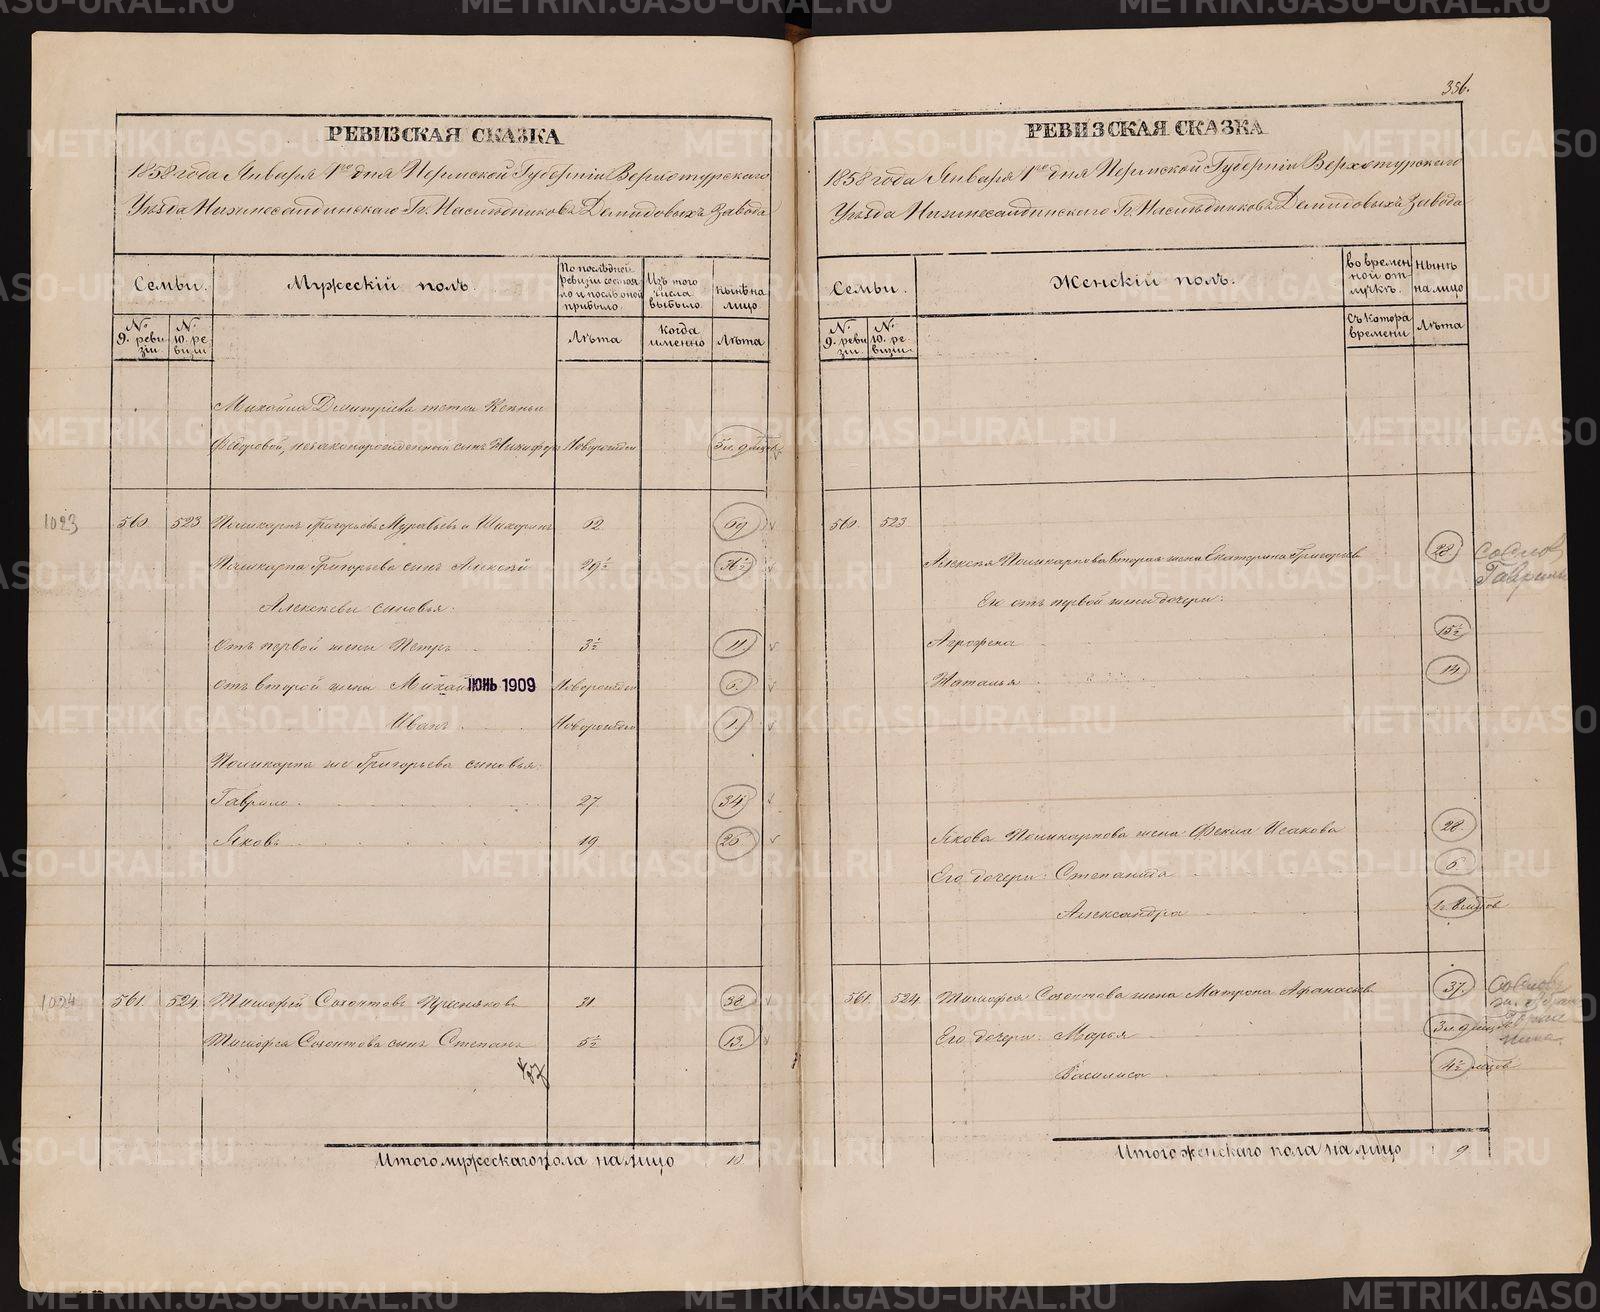 356.
РЕВИЗСКАЯ СКАЗКА
1858 года Января 1го дня Пермской Губерніи Верхотурскаго
Уѣзда Нижнесалдинскаго Гг. Наслѣдниковъ Демидовыхъ Завода
Семьи.
Мужескій полъ.
По послѣдней ревизіи состояло и послѣ оной прибыло.
Изъ того числа выбыло.
нынѣ на лицо
№ 9. ревизіи
№ 10. ревизіи
Лѣта
когда именно
Лѣта
Михайла Дмитріева тетки
Федоровой, незаконорожденный сынъ Никифоръ новорожден
1023
560. 523. Поликарпъ Григорьевъ Муравьевъ 62 69
Поликарпа Григорьева сынъ Алексѣй 29½ 36½
Алексѣевы сыновья:
Отъ первой жены Петръ 3½ 11
отъ второй жены ІЮНЬ 1909 новорожден 6.
Иванъ новорожден 1.
Поликарпа же Григорьева сыновья:
Гаврило 27. 34
Яковъ 19 26
1024
561. 524. Тимофей Созонтовъ 31 38.
Тимофея Созонтова сынъ Степанъ 5½ 13.
Итого мужескаго пола на лицо 10.
РЕВИЗСКАЯ СКАЗКА
1858 года Января 1го дня Пермской Губерніи Верхотурскаго
Уѣзда Нижнесалдинскаго Гг. Наслѣдниковъ Демидовыхъ Завода
Семьи.
Женскій полъ.
во временной отлучкѣ.
нынѣ на лицо
№ 9. ревизіи
№ 10. ревизіи.
Съ котора времени
Лѣта
560. 523.
Алексѣя Поликарпова вторая жена Екатерина Григорьев 28.
Его отъ первой жены дочери:
Агрофена 15½
Наталья 14.
Якова Поликарпова жена Фекла Исакова 28.
Его дочери: Степанида 6
Александра
561. 524. Тимофея Созонтова жена Матрона Афанасьев 37.
Его дочери: Марья
Василиса 4½
Итого женскаго пола на лицо 9
METRIKI.GASO-URAL.RU